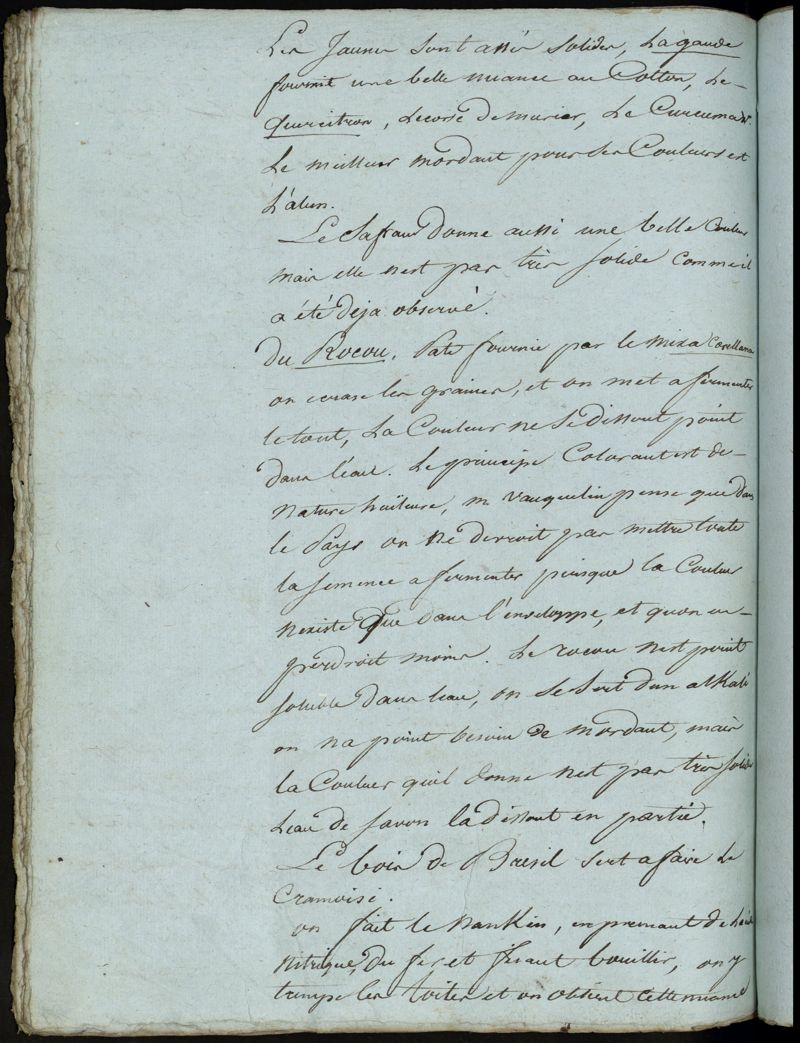 Les Jaunes sont assés solides, La gaude
fournit une belle nuance au Cotton, Le-
quercitron, L'ecorse de murier, Le Curcuma &c.
Le meilleur mordant pour ses Couleurs est
L'alun.
Le Safran donne aussi une belle Couleur
mais elle n'est pas très solide comme il
a été deja observé.
Du Rocou. Pate fournie par le mixa Orellana
on ecrase les graines, et on met a fermenter
le tout, La Couleur ne se dissout point
dans l'eau. Le principe Colorant est de-
Nature huileuse, m Vauquelin pense que dans
le Pays on ne devroit pas mettre toute
la semence a fermenter puisque la Couleur
n'existe que dans l'enveloppe, et qu'on en-
perdroit moins. Le rocou n'est point
soluble dans l'eau, on se sert d'un alKali
on n'a point besoin de mordant, mais
la Couleur qu'il donne n'est pas très solide
L'eau de savon la dissout en partie.
Le bois de Bresil sert a faire le
Cramoisi.
on fait le NanKin, en prenant de L'acide
Nitrique, du fer et faisant bouillir, on y
trempe les toiles et on obtient cette nuance